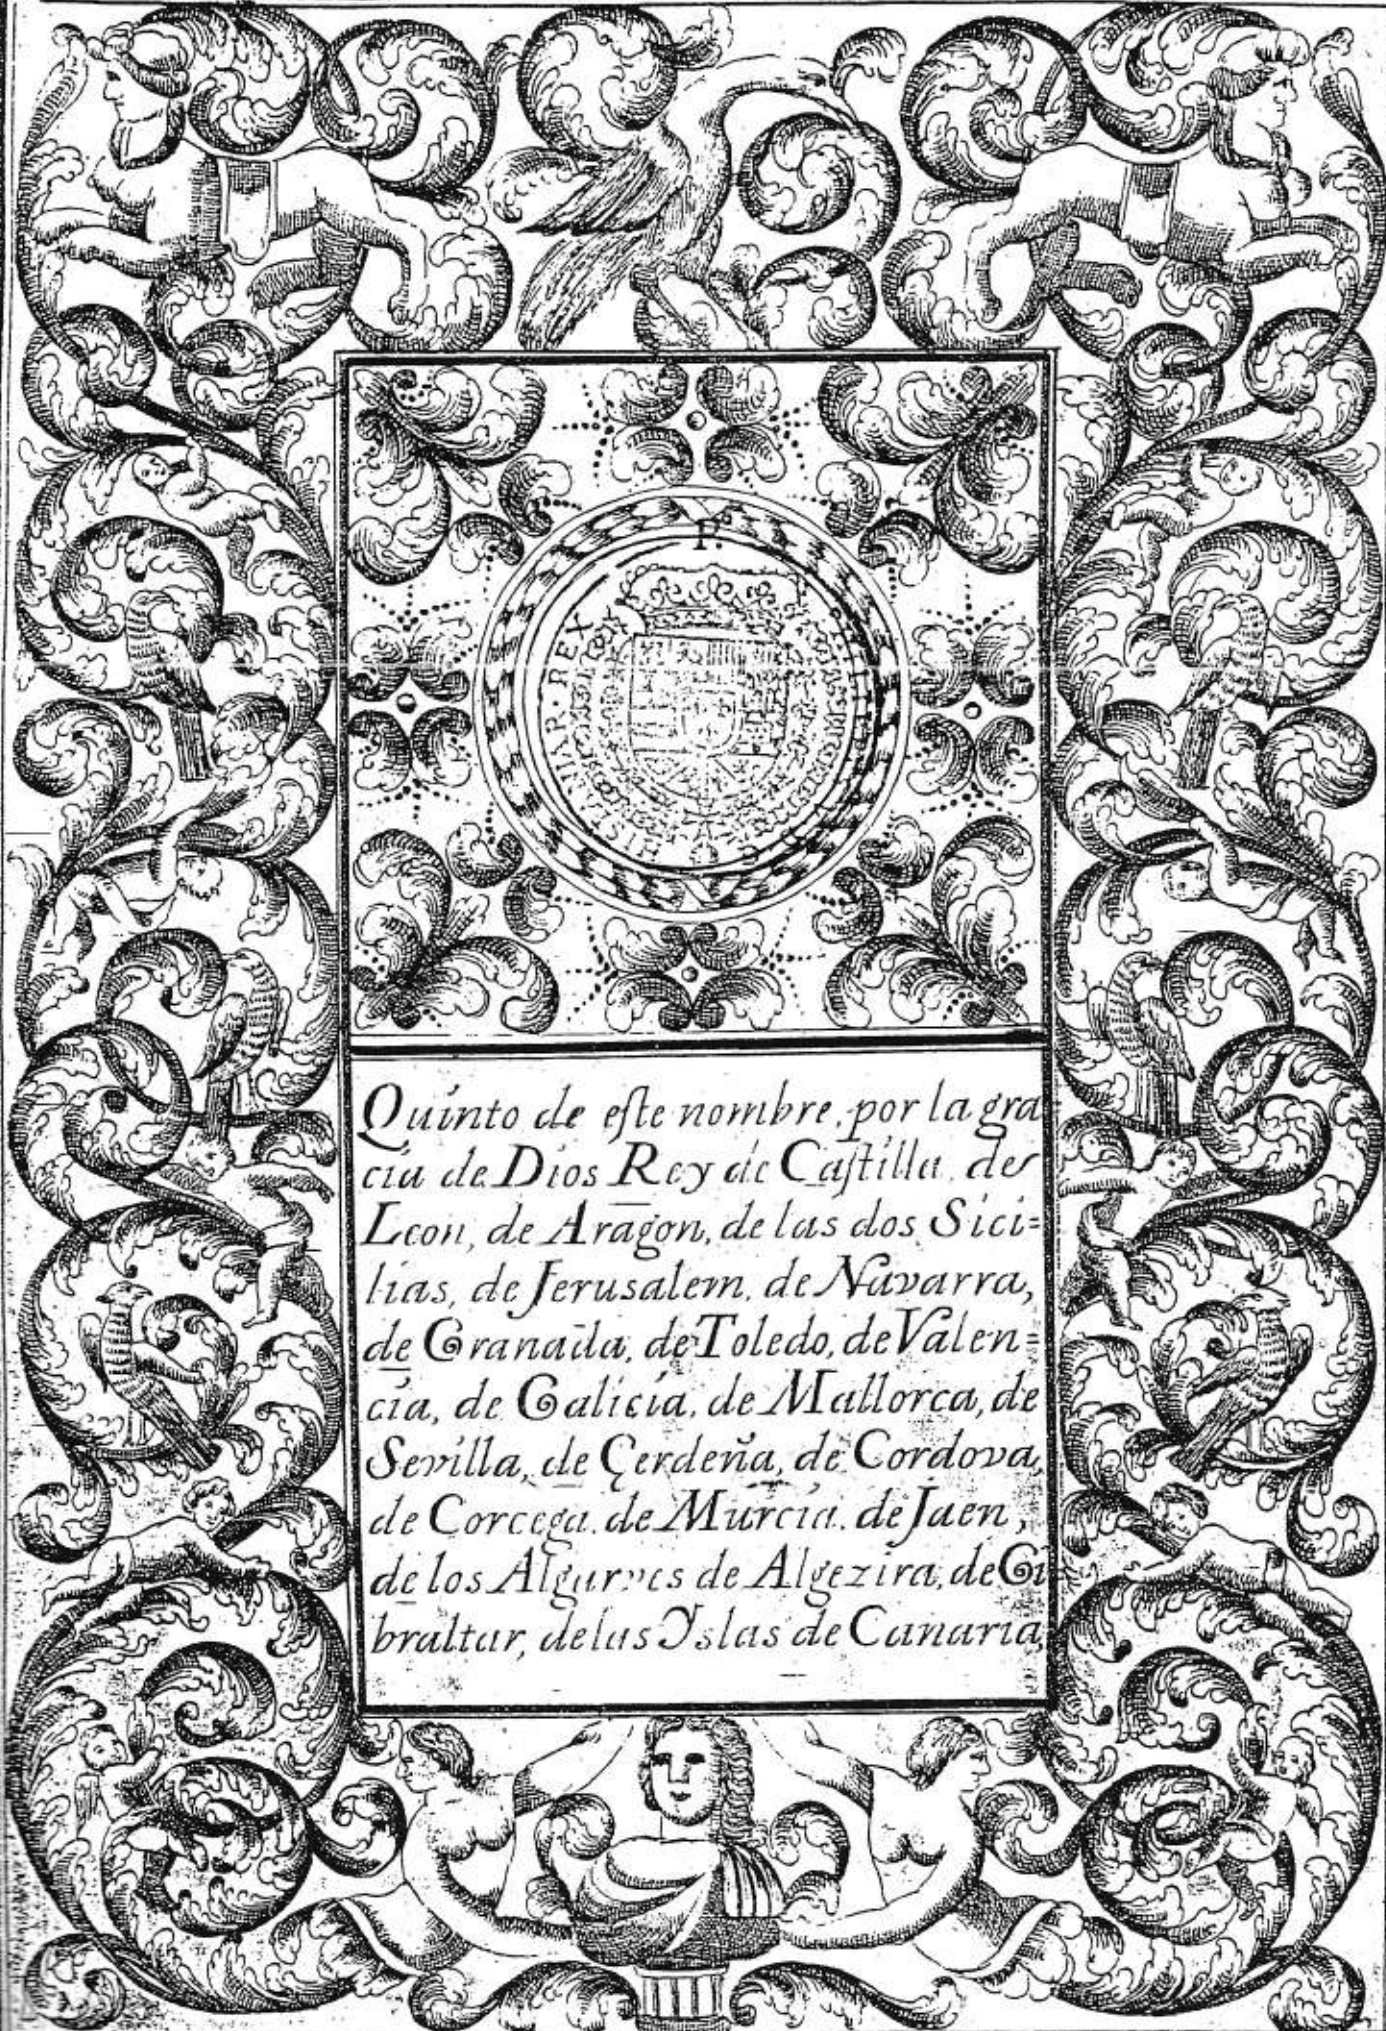 P.
PHILIPPUS
HISPANIAR·REX
Quinto de eſte nombre, por la gra
cia de Dios Rey de Caſtilla, de
Leon, de Aragon, de las dos Sici=
lias, de Jerusalem, de Navarra,
de Granada, de Toledo, de Valen=
cia, de Galicia, de Mallorca, de
Sevilla, de Çerdeña, de Cordova,
de Corcega, de Murcia, de Jaen,
de los Algarves de Algezira, de Gi
braltar, de las Yslas de Canaria,